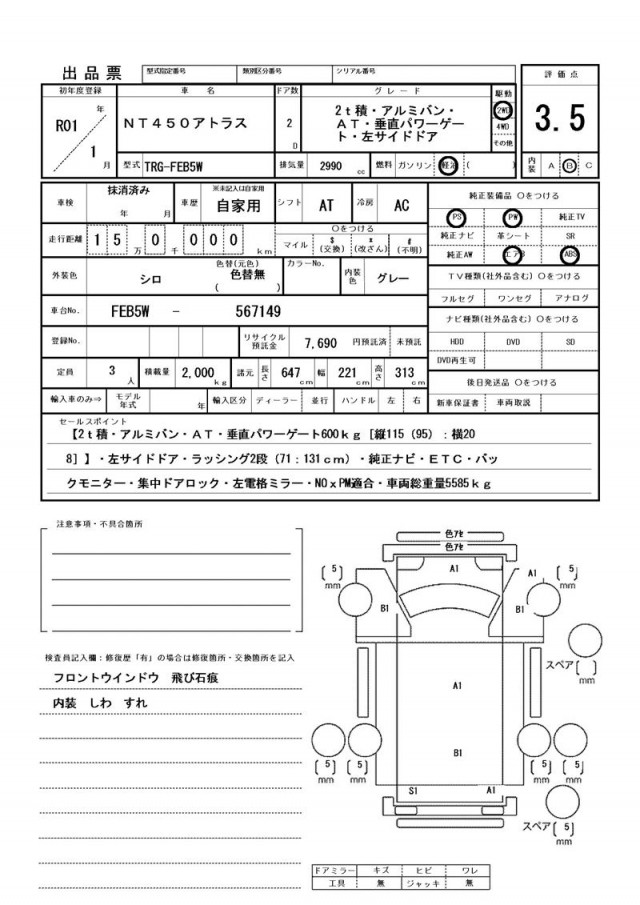 出品票 型式指定番号 類別区分番号 シリアル番号
初年度登録 車 名 ドア数 グレード 駆動 評価点
R01 年 1 月 NT450アトラス 2 D 2t積・アルミバン・ 2WD 3.5
AT・垂直パワーゲー 4WD
ト・左サイドドア その他
型式 TRG-FEB5W 排気量 2990 cc 燃料 ガソリン 軽油 ( ) 内装 A B C
車検 抹消済み 年 月 車歴 ※未記入は自家用 自家用 シフト AT 冷房 AC 純正装備品 〇をつける
PS PW 純正TV
走行距離 15万0千000km 〇をつける マイル $(交換) *(改ざん) #(不明) 純正ナビ 革シート SR
純正AW エアB ABS
外装色 シロ 色替(元色) 色替無 ( ) カラーNo. 内装色 グレー TV種類(社外品含む) 〇をつける
フルセグ ワンセグ アナログ
車台No. FEB5W - 567149 ナビ種類(社外品含む) 〇をつける
登録No. リサイクル預託金 7,690 円預託済 未預託 HDD DVD SD
DVD再生可
定員 3 人 積載量 2,000 kg 諸元 長さ 647 cm 幅 221 cm 高さ 313 cm 後日発送品 〇をつける
輸入車のみ⇒ モデル年式 年 輸入区分 ディーラー 並行 ハンドル 左 右 新車保証書 車両取説
セールスポイント
【2t積・アルミバン・AT・垂直パワーゲート600kg[縦115(95):横20
8]】・左サイドドア・ラッシング2段(71:131cm)・純正ナビ・ETC・バッ
クモニター・集中ドアロック・左電格ミラー・NOxPM適合・車両総重量5585kg
注意事項・不具合箇所
色アセ
色アセ
A1
[5] mm A1 [5] mm
B1 B1
検査員記入欄:修復歴「有」の場合は修復箇所・交換箇所を記入
スペア[ ] mm
フロントウインドウ 飛び石痕
A1
内装 しわ すれ
B1
[5] mm [5] mm [5] mm [5] mm
S1 A1
スペア[5] mm
ドアミラー キズ ヒビ ワレ
工具 無 ジャッキ 無